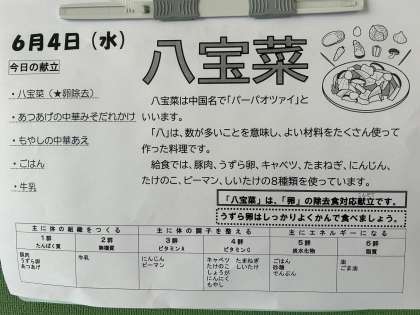 6月4日（水）
八宝菜
今日の献立
・八宝菜（★卵除去）
・あつあげの中華みそだれかけ
・もやしの中華あえ
・ごはん
・牛乳
八宝菜は中国名で「パーパオツァイ」と
いいます。
「八」は、数が多いことを意味し、よい材料をたくさん使って
作った料理です。
給食では、豚肉、うずら卵、キャベツ、たまねぎ、にんじん、
たけのこ、ピーマン、しいたけの8種類を使っています。
「八宝菜」は、「卵」の除去食対応献立です。
うずら卵はしっかりよくかんで食べましょう。
主に体の組織をつくる 主に体の調子を整える 主にエネルギーになる
1群 2群 3群 4群 5群 6群
たんぱく質 無機質 ビタミンA ビタミンC 炭水化物 脂質
豚肉 牛乳 にんじん キャベツ たまねぎ ごはん 油
うずら卵 ピーマン たけのこ しいたけ 砂糖 ごま油
あつあげ しょうが でんぷん
にんにく
もやし